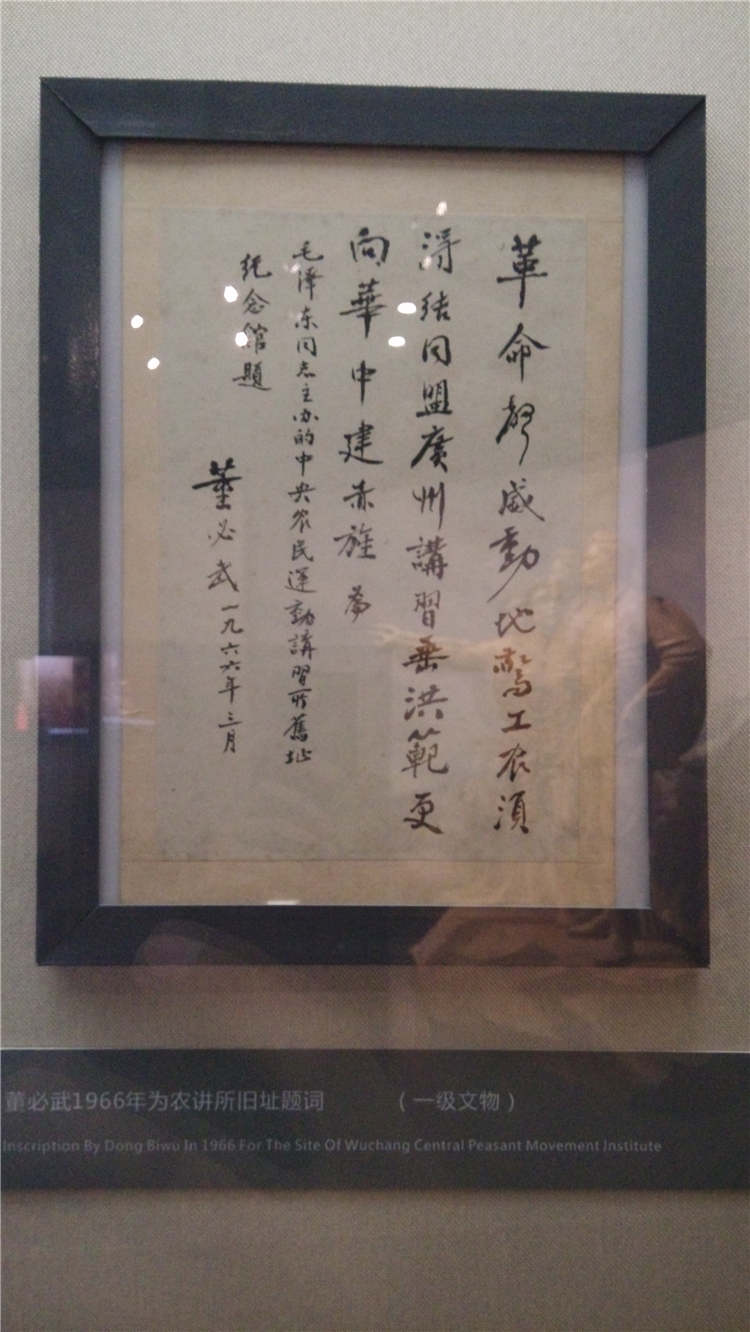 革命聲威動地驚工农須
得结同盟廣州講習垂洪範更
向華中建赤旌 為
毛泽东同志主办的中央农民運动講習所舊址
纪念館題
董必武 一九六六年三月
董必武1966年为农讲所旧址题词 （一级文物）
Inscription By Dong Biwu In 1966 For The Site Of Wuchang Central Peasant Movement Institute